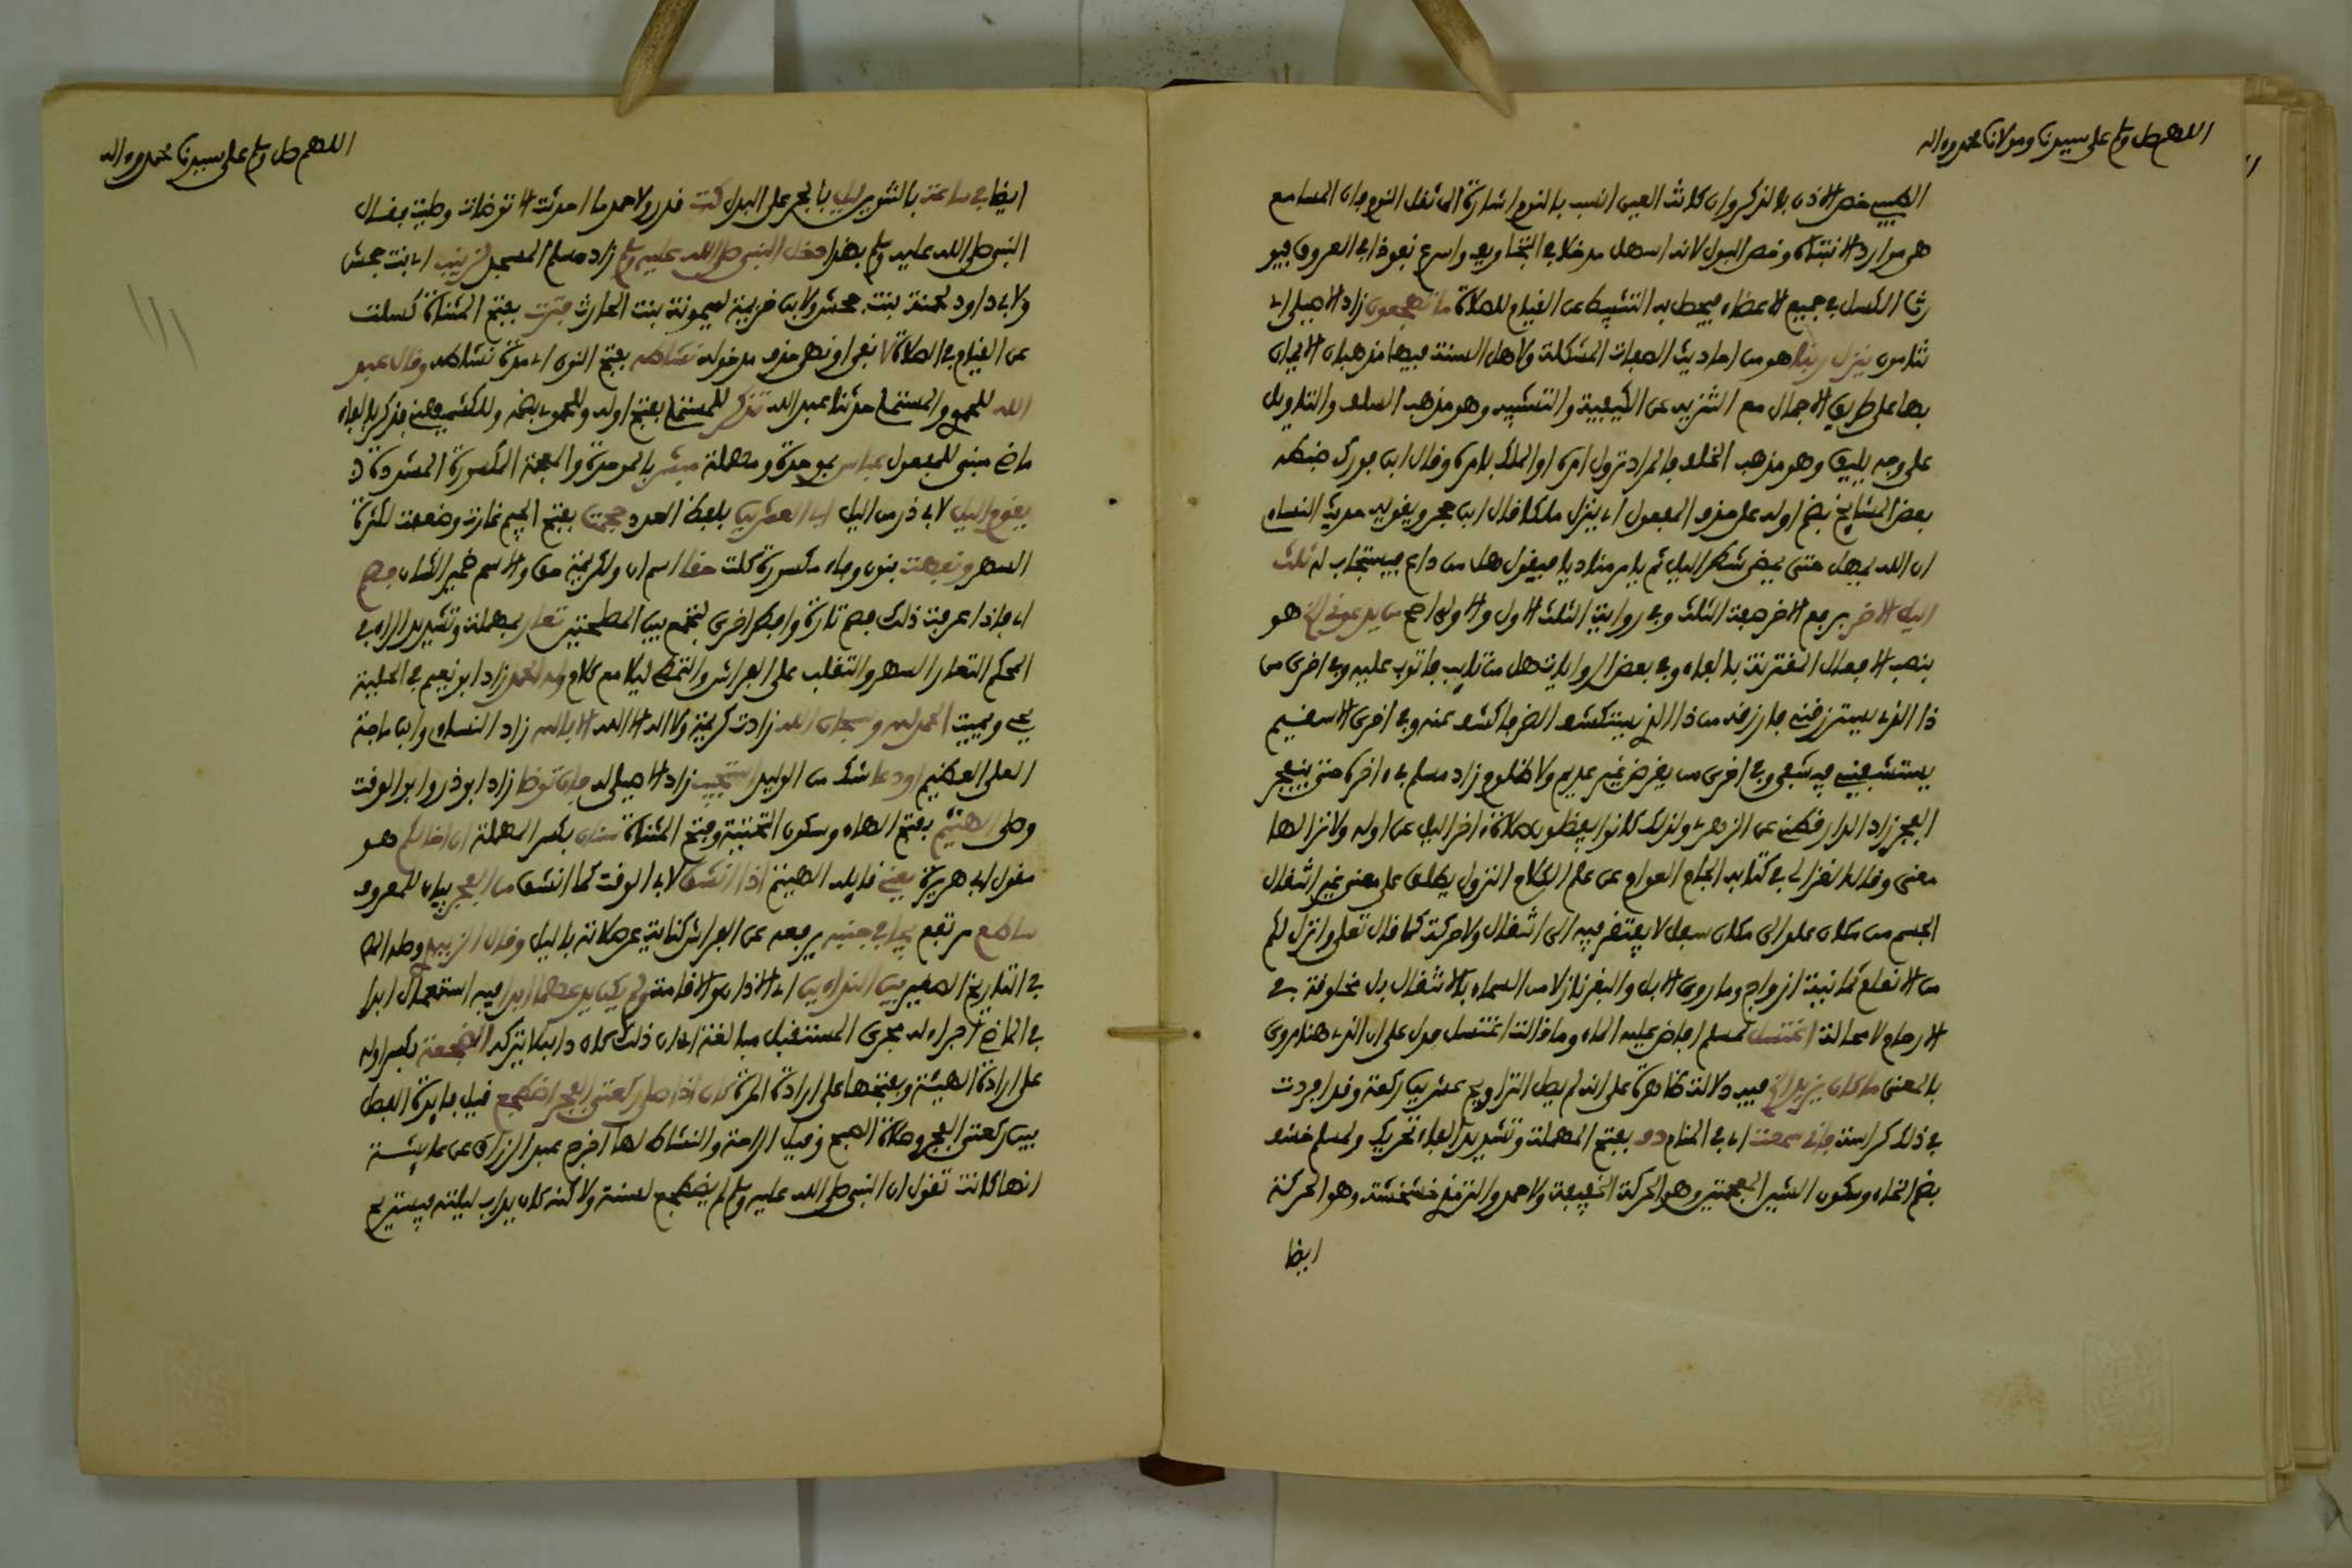 اللهم صل وسلم على سيدنا ومولانا محمد وءاله
الطيبي خص الاذن بالذكر وان كانت العين انسب بالنوم اشارة الى ثقل النوم فان المسامع
هي موارد الانتباه وخص البول لانه اسهل مدخلا في التجاويف واسرع نفوذا في العروق فيو
رث الكسل في جميع الاعضاء فيحصل به التثبيط عن القيام للصلاة ما يهجعون زاد الاصيلي اي
ينامون ينزل ربنا هو من احاديث الصفات المشكلة ولاهل السنة فيها مذهبان الايمان
بها على طريق الاجمال مع التنزيه عن الكيفية والتشبيه وهو مذهب السلف والتاويل
على وجه يليق وهو مذهب الخلف فالمراد نزول امره او الملك بامره وقال ابن فورك ضبطه
بعض المشايخ بضم اوله على حذف المفعول اي ينزل ملكا قال ابن حجر ويقويه حديث النساء
ان الله يمهل حتى يمضي شطر الليل ثم يامر مناديا فيقول هل من داع فيستجاب له ثلث
الليل الاخر برفع الاخر صفة الثلث وفي رواية الثلث الاول والاولى اصح من يدعوني الخ هو
بنصب الافعال المقترنة بالفاء وفي بعض الروايات هل من تايب فاتوب عليه وفي اخرى من
ذا الذي يسترزقني فارزقه من ذا الذي يستكشف الضر فاكشف عنه وفي اخرى الا سقيم
يستشفيني فيشفى وفي اخرى من يقرض غير عديم ولا ظلوم زاد مسلم في ءاخره حتى ينفجر
الفجر زاد الدارقطني عن الزهري ولذلك كانوا يفضلون صلاة ءاخر الليل عن اوله ولانزالها
معنى وقال الغزالي في كتابه الجام العوام عن علم الكلام النزول يطلق على معنى غير انتقال
الجسم من مكان علو الى مكان سفل لا يفتقر فيه الى انتقال ولا حركة كما قال تعلى وانزل لكم
من الانعام ثمانية ازواج وما روي الابل والبقر نازلا من السماء بالانتقال بل مخلوقة في
الارحام لا محالة اغتسل لمسلم افاض عليه الماء وما قالت اغتسل فدل على ان الذي هنا مروي
بالمعنى ما كان يزيد الخ فيه دلالة ظاهرة على انه لم يصل التراويح عشرين ركعة وقد افردت
في ذلك كراسة فاني سمعت اي في المنام دف بفتح المهملة وتشديد الفاء تحريك ولمسلم خشف
بضم الخاء وسكون الشين المعجمتين وهو الحركة الخفيفة ولاحمد والترمذي خشخشة وهو الحركة
ايضا
اللهم صل وسلم على سيدنا محمد وءاله
ايضا في ساعة بالتنوين ليل بالجر على البدل كتب قدر ولاحمد ما احدثت الا توضات وصليت فقال
النبي صلى الله عليه وسلم بهذا دخل النبي صلى الله عليه وسلم زاد مسلم المسجد لزينب اي بنت جحش
ولابي داود لحمنة بنت جحش ولابن خزيمة لميمونة بنت الحارث فترت بفتح المثناة كسلت
عن القيام في الصلاة لا نفي او نهي حذف مدخوله نشاطه بفتح النون اي مدة نشاطه وقال عبد
الله للحموي والمستملي حدثنا عبد الله تذكر للمستملي بفتح اوله وللحموي بضمه وللكشميهني فذكر بالفاء
ماض مبني للمفعول عباس بموحدة ومهملة مبشر بالموحدة والمعجمة المكسورة المشددة
يقوم الليل لابي ذر من الليل ابي العشرين بلفظ العدد هجمت بفتح الجيم غارت وضعفت لكثرة
السهر ونفهت بنون وفاء مكسورة كلت حقا اسم ان ولكريمة حق والاسم ضمير الشان فصم
اي فاذا عرفت ذلك فصم تارة وافطر اخرى لتجمع بين المصلحتين تعار بمهملة وتشديد الراء في
المحكم التعار السهر والتقلب على الفراش والتمطي ليلا مع كلام وله الحمد زاد ابو نعيم في الحلية
يحي ويميت الحمد لله وسبحان الله زادت كريمة ولا اله الا الله الا بالله زاد النساء وابن ماجة
العلي العظيم او دعا شك من الوليد استجيب زاد الاصيلي له فان توضا زاد ابو ذر وابو الوقت
وصلى الهيثم بفتح الهاء وسكون التحتية وفتح المثناة سنان بكسر المهملة ان اخا لكم هو
مقول ابي هريرة يعني قايله الهيثم اذا انشق لابي الوقت كما انشق من الفجر بيان للمعروف
ساطع مرتفع يجافي جنبه يرفعه عن الفراش كناية عن صلاته بالليل وقال الزبيدي وصله البخ
في التاريخ الصغير بين النداءين اي الاذان والاقامة ولم يكن يدعهما ابدا فيه استعمال ابدا
في الماضي اجراء له مجرى المستقبل مبالغة اي ان ذلك كان دابه لا يتركه الضجعة بكسر اوله
على ارادة الهيئة وبفتحها على ارادة المرة كان اذا صلى ركعتي الفجر اضطجع قيل فايدة الفصل
بين ركعتي الفجر وصلاة الصبح وقيل الراحة والنشاط لها اخرج عبد الرزاق عن عايشة
انها كانت تقول ان النبي صلى الله عليه وسلم لم يضطجع لسنة ولاكنه كان يداب ليلته فيستريح